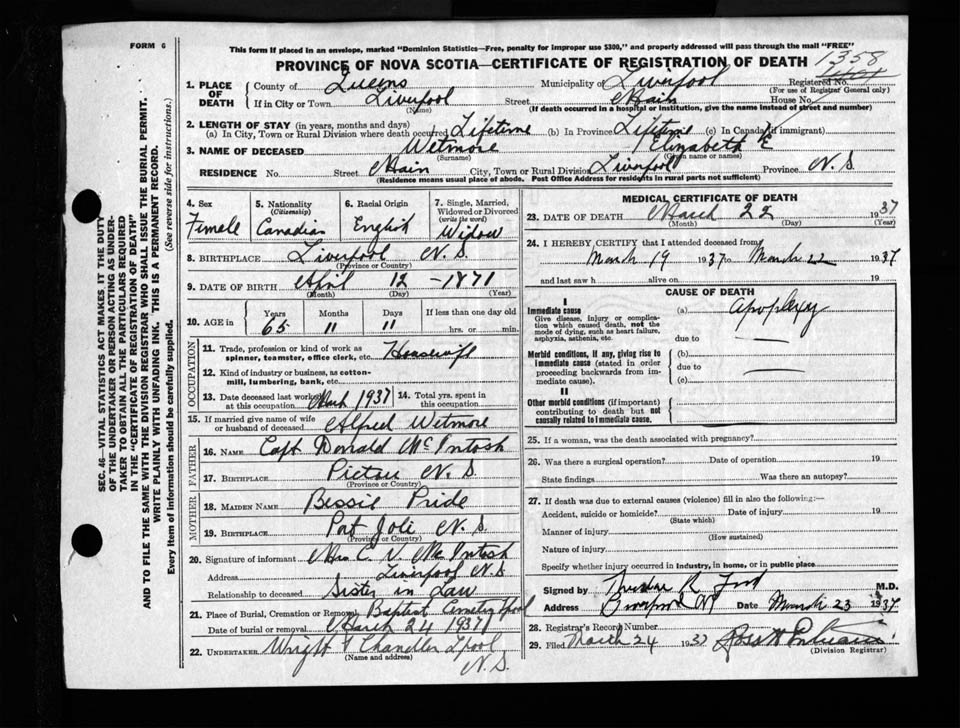 FORM 6
This form if placed in an envelope, marked "Dominion Statistics—Free, penalty for improper use $300," and properly addressed will pass through the mail "FREE"
PROVINCE OF NOVA SCOTIA—CERTIFICATE OF REGISTRATION OF DEATH
1358
1. PLACE OF DEATH County of Queens Municipality of Liverpool Registered No.
(For use of Registrar General only)
If in City or Town Liverpool Street Main House No.
(Name) (If death occurred in a hospital or institution, give the name instead of street and number)
2. LENGTH OF STAY (in years, months and days)
(a) In City, Town or Rural Division where death occurred Lifetime (b) In Province Lifetime (c) In Canada (if immigrant)
3. NAME OF DECEASED Wetmore Elizabeth E
(Surname) (Given name or names)
RESIDENCE No. Street Main City, Town or Rural Division Liverpool Province N.S
(Residence means usual place of abode. Post Office Address for residents in rural parts not sufficient)
4. Sex Femele
5. Nationality (Citizenship) Canadian
6. Racial Origin English
7. Single, Married, Widowed or Divorced (write the word) Widow
8. BIRTHPLACE Liverpool N.S.
(Province or Country)
9. DATE OF BIRTH April 12 -1871
(Month) (Day) (Year)
10. AGE in Years Months Days If less than one day old
65 " " hrs. or min.
OCCUPATION
11. Trade, profession or kind of work as spinner, teamster, office clerk, etc. Housewife
12. Kind of industry or business, as cotton-mill, lumbering, bank, etc.
13. Date deceased last worked at this occupation March 1937 14. Total yrs. spent in this occupation
15. If married give name of wife or husband of deceased Alfred Wetmore
FATHER
16. NAME Capt Donald McIntosh
17. BIRTHPLACE Pictou N.S.
(Province or Country)
MOTHER
18. MAIDEN NAME Bessie Pride
19. BIRTHPLACE Port Joli N.S.
(Province or Country)
20. Signature of informant Mrs C. V. McIntosh
Address Liverpool N.S
Relationship to deceased Sister in Law
21. Place of Burial, Cremation or Removal Baptist Cemetery Lpool
Date of burial or removal March 24 1937
22. UNDERTAKER Wright & Chandler Lpool
(Name and address) N.S.
MEDICAL CERTIFICATE OF DEATH
23. DATE OF DEATH March 22 1937
(Month) (Day) (Year)
24. I HEREBY CERTIFY that I attended deceased from
March 19 1937 to March 22 1937
and last saw h alive on 19
CAUSE OF DEATH
I
Immediate cause (a) Apoplexy
Give disease, injury or complication which caused death, not the mode of dying, such as heart failure, asphyxia, asthenia, etc.
due to
Morbid conditions, if any, giving rise to immediate cause (stated in order proceeding backwards from immediate cause).
(b)
due to
(c)
II
Other morbid conditions (if important) contributing to death but not causally related to immediate cause.
25. If a woman, was the death associated with pregnancy?
26. Was there a surgical operation? Date of operation 19
State findings Was there an autopsy?
27. If death was due to external causes (violence) fill in also the following:—
Accident, suicide or homicide? Date of injury 19
(State which)
Manner of injury
(How sustained)
Nature of injury
Specify whether injury occurred in industry, in home, or in public place
Signed by M.D.
Address Liverpool NS Date March 23 1937
28. Registrar's Record Number
29. Filed March 24 1937
(Division Registrar)
SEC. 46—VITAL STATISTICS ACT MAKES IT THE DUTY
OF THE UNDERTAKER OR PERSON ACTING AS UNDERTAKER
TO OBTAIN ALL THE PARTICULARS REQUIRED
IN THE "CERTIFICATE OF REGISTRATION OF DEATH"
AND TO FILE THE SAME WITH THE DIVISION REGISTRAR WHO SHALL ISSUE THE BURIAL PERMIT.
WRITE PLAINLY WITH UNFADING INK. THIS IS A PERMANENT RECORD.
Every item of information should be carefully supplied. (See reverse side for instructions.)